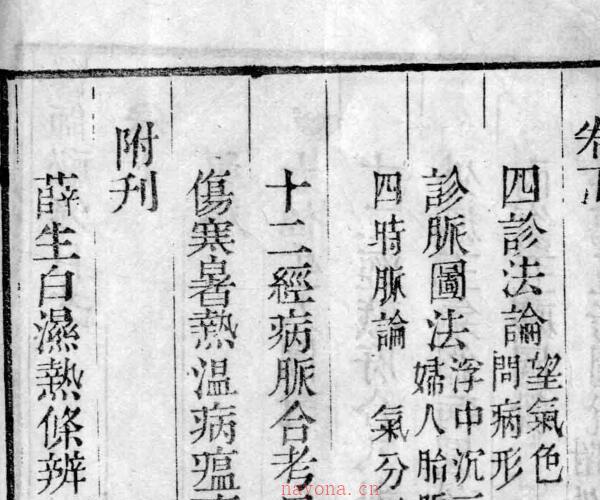 卷下
四診法論 望氣色
問病形
診脈圖法 浮中沉
婦人胎脈
四時脈論 氣分
十二經病脈合考
傷寒暑熱温病瘟
附刊
薛生白濕熱條辨
nayona.cn